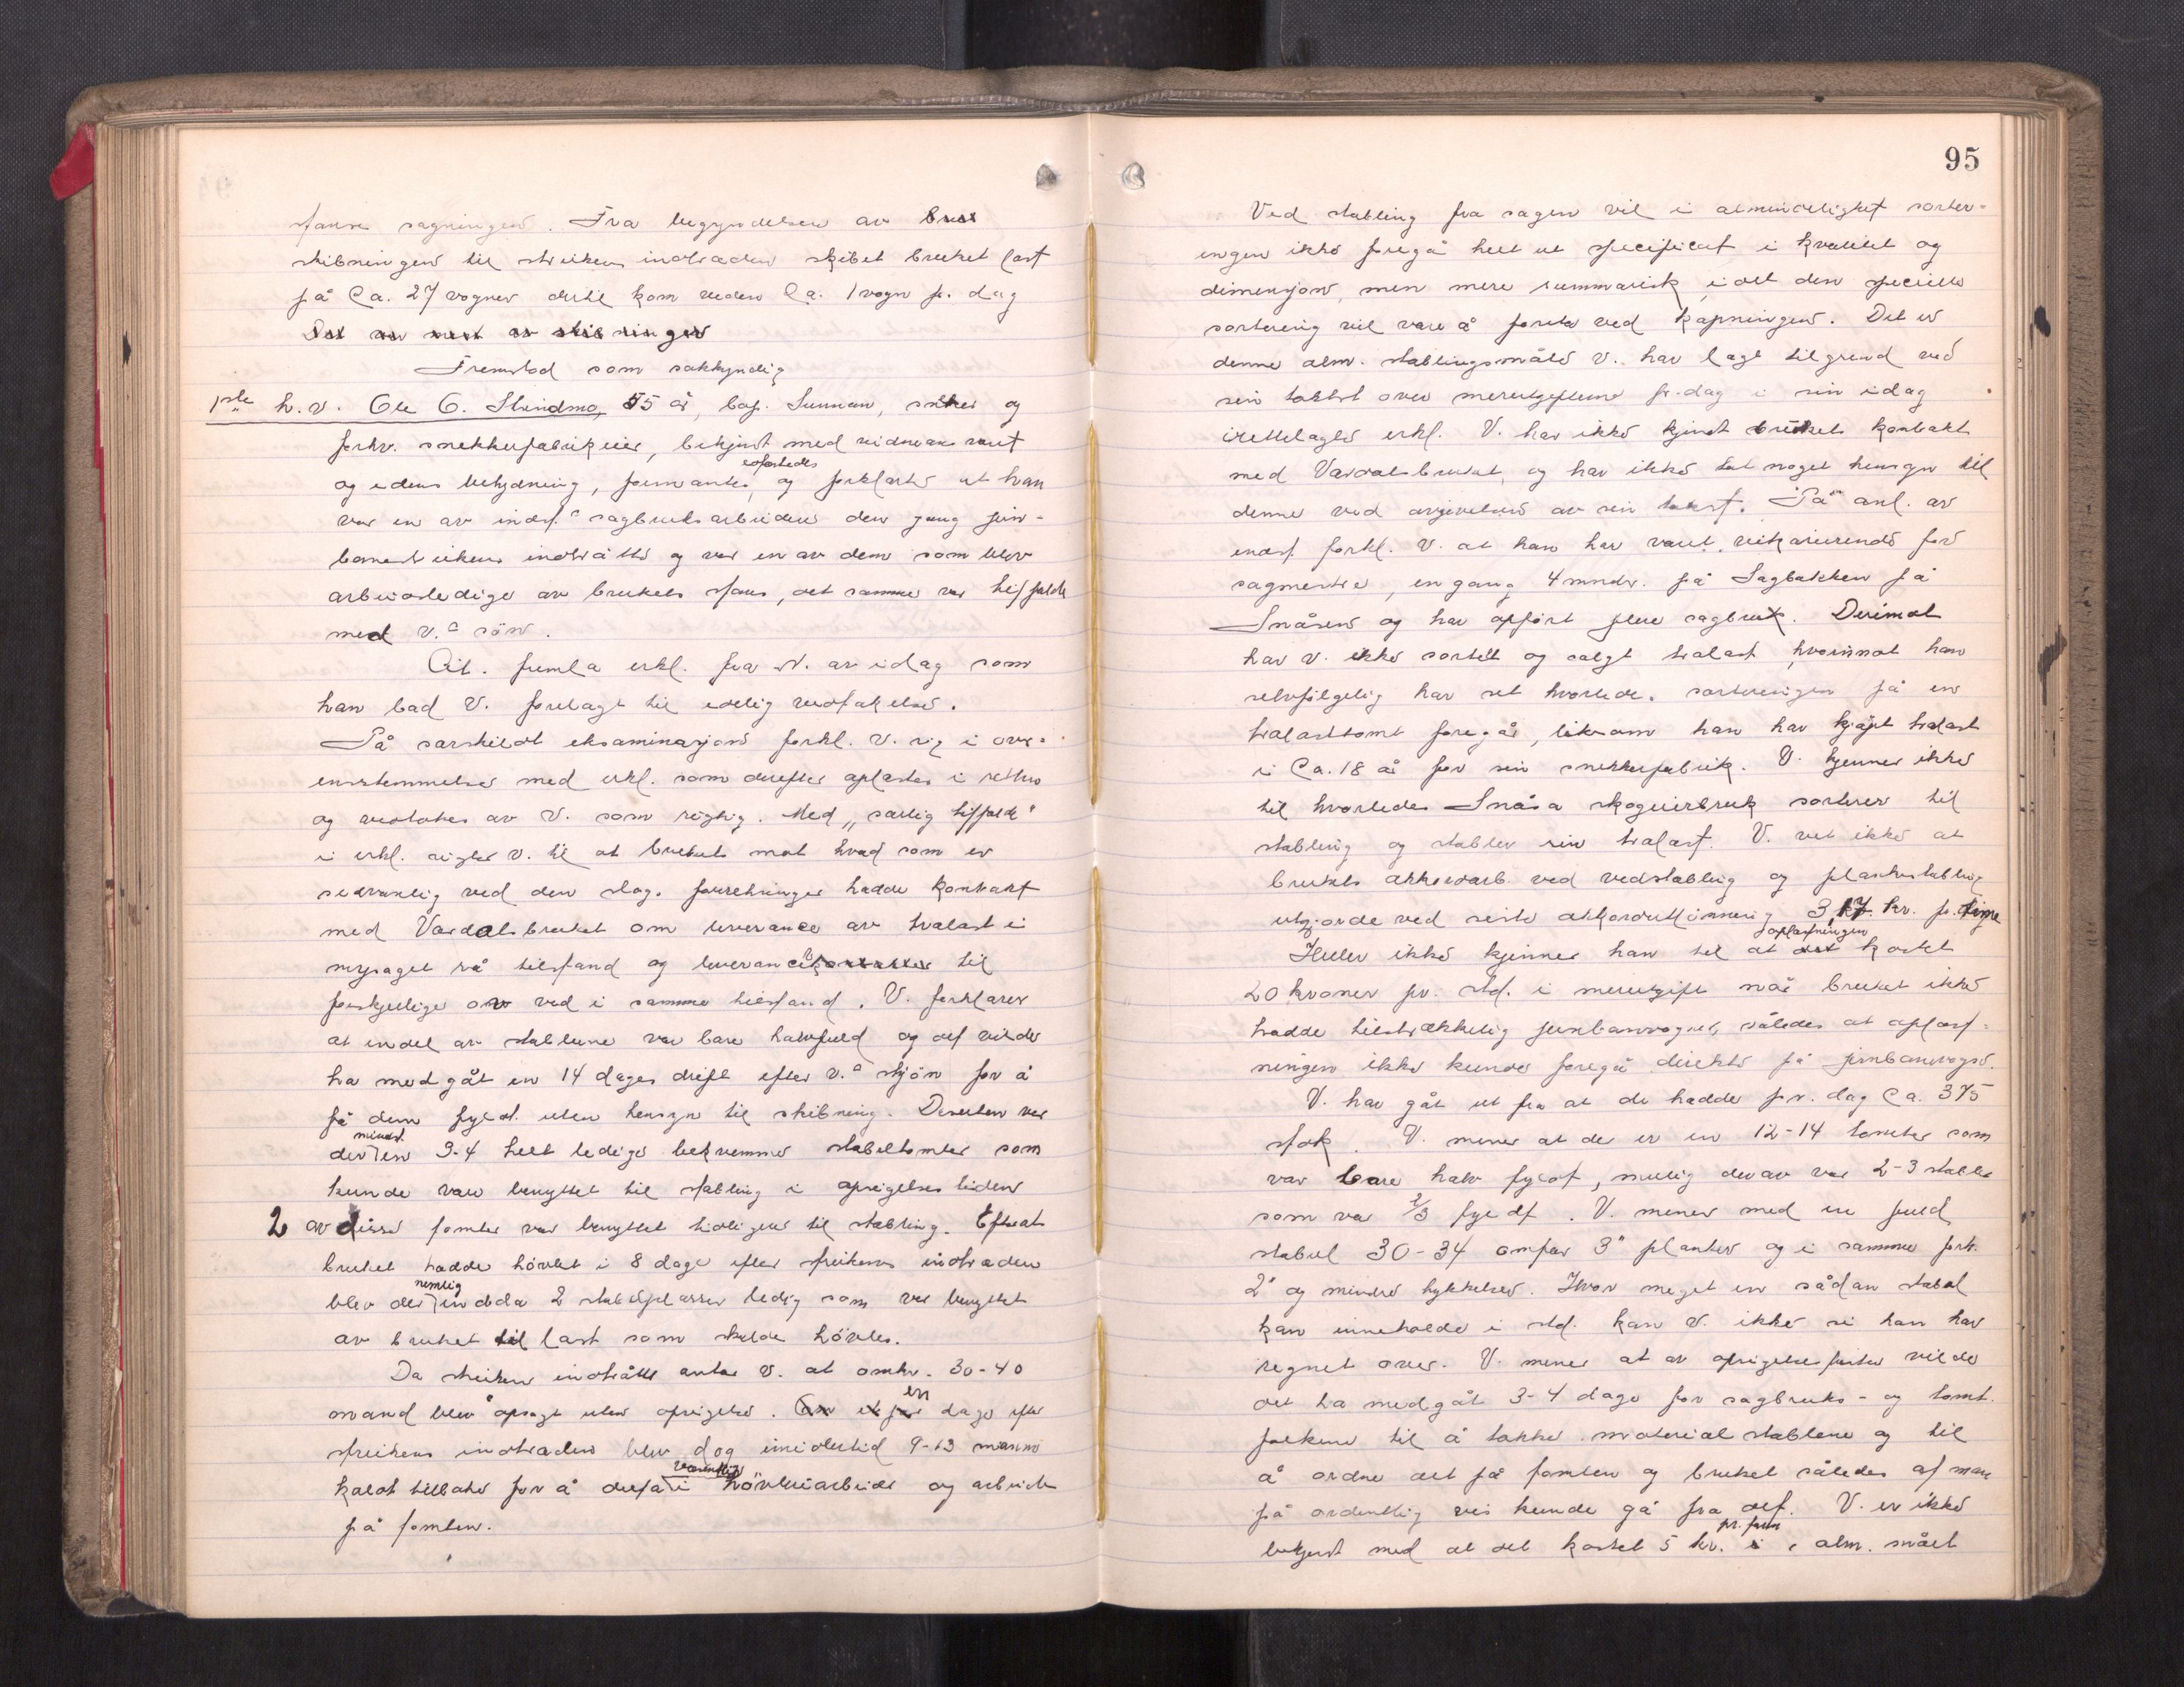 stanse sagningen. Fra begyndelsen av
skibningen til streikens indtræden skibet bruket last
på ca. 27 vogner dertil kom veden ca. 1 vogn pr. dag
Det var mest av skibningen
Fremstod som sakkyndig
1ste h.v. Ole O. Strindmo, 55 år, bop. Sunnan, snekker og
forhv. snekkerfabrikeier, bekjent med vidneansvaret
og edens betydning, formantes, edfæstedes og forklarte at han
var en av inds. sagbruksarbeidere den gang jern-
banestreikens indtrådte og var en av dem som blev
arbeidsledige av brukets stans, det samme var tilfælde
med v.s sön.
Cit. fremla erkl. fra v. av idag som
han bad v. forelagt til edelig vedtakelse.
På særskildt eksaminasjon forkl. v. sig i over-
ensstemmelse med erkl. som derefter oplæstes i retten
og vedtokes av v. som rigtig. Med "særlig tilfælde"
i erkl. sigter v. til at bruket mot hvad som er
sedvanlig ved den slags forretninger hadde kontrakt
med Værdalsbruket om leverance av trælast i
nysaget rå tilstand og leverance til
forskjellige av ved i samme tilstand. V. forklarer
at endel av stablerne var bare halvfuld og det vilde
ha medgåt en 14 dages drift efter v.s skjön for å
få dem fyldt uten hensyn til skibning. Desuten var
der mindst en 3-4 helt ledige bekvemme stabeltomter som
kunde være benyttet til stabling i opsigelsestiden
2 av disse tomter var benyttet tidligere til stabling. Efterat
bruket hadde hövlet i 8 dage efter streikens indtræden
blev der nemlig endda 2 stabelplasser ledig som var benyttet
av bruket til last som skulde hövles.
Da streiken indtrådte antar v. at omkr. 30-40
mand blev opsagt uten opsigelse. en dags efter
streikens indtræden blev dog imidlertid 9-13 mann
kaldt tilbake for å delta væsentlig i hövleriarbeide og arbeide
på tomten.
95
Ved stabling fra sagen vil i almindelighet sorter-
ingen ikke foregå helt ut specificert i kvalitet og
dimensjon, men mere summarisk, idet den specielle
sortering vil være å foreta ved kapningen. Det er
denne alm. stablingsmåte v. har lagt til grund ved
sin takst over merutgifterne pr. dag i sin idag
irettelagte erkl. V. har ikke kjendt brukets kontrakt
med Værdalsbruket, og har ikke tat noget hensyn til
denne ved avgivelsen av sin takst. På anl. av
inds. forkl. v. at han har været vikarierende for
sagmester, en gang 4 mndr. på Sagbakken på
Snåsen og har opfört flere sagbruk. Derimot
har v. ikke sortert og solgt trælast, hvorimot han
selvfölgelig har set hvorledes sorteringen på en
trælasttomt foregår, likesom han har kjöpt trælast
i ca. 18 år for sin snekkerfabrik. V. kjenner ikke
til hvorledes Snåsa skogeierbruk sorterer til
stabling og stabler sin trælast. V. vet ikke at
brukets akkordarb. ved vedstabling og plankestabling
utgjorde ved siste akkordutlönning 3,17 kr. pr. time
Heller ikke kjenner han til at oplastningen kostet
20 kroner pr. std. i merutgift når bruket ikke
hadde tilstrækkelig jernbanevogner, således at oplast-
ningen ikke kunde foregå direkte på jernbanevogn.
V. har gåt ut fra at de hadde pr. dag ca. 375
stok. V. mener at der er en 12-14 tomter som
var bare halv fyldt, mulig derav var 2-3 stabler
som var 2/3 fyldt. V. mener med en fuld
stabel 30-34 omfar 3" planker og i samme forh.
2" og mindre tykkelser. Hvor meget en sådan stabel
kan inneholde i std. kan v. ikke si han har
regnet over. V. mener at av opsigelsesfristen vilde
det ha medgåt 3-4 dage for sagbruks- og tomt-
folkene til å takke materialstablene og til
å ordne det på tomten og bruket således at man
på ordentlig vis kunde gå fra det. V. er ikke
bekjent med at det kostet 5 kr. pr. favn i alm. målt